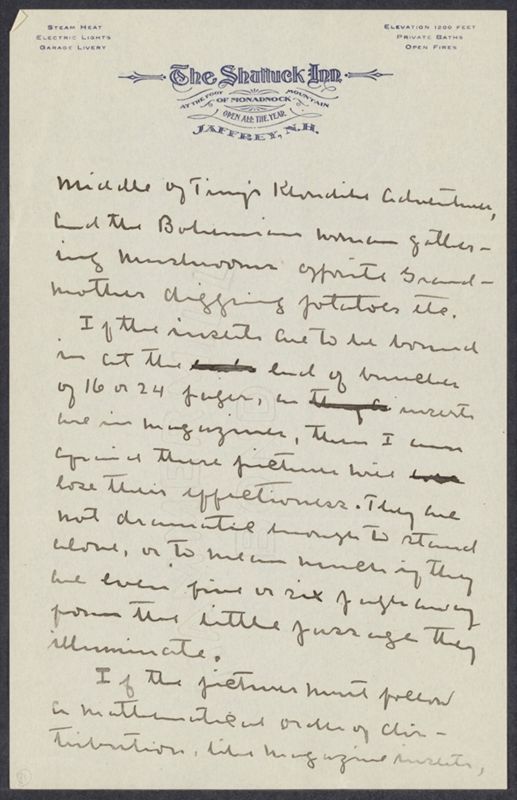 STEAM HEAT
ELECTRIC LIGHTS
GARAGE LIVERY
ELEVATION 1200 FEET
PRIVATE BATHS
OPEN FIRES
The Shattuck Inn
AT THE FOOT OF MONADNOCK MOUNTAIN
OPEN ALL THE YEAR
JAFFREY, N.H.
middle of Tiny's Klondike adventures,
and the Bohemian woman gather-
ing mushrooms opposite Grand-
mother digging potatoes etc.
If the inserts are to be bound
in at the end of bunches
of 16 or 24 pages, as inserts
are in magazines, then I am
afraid these pictures will
lose their effectiveness. They are
not dramatic enough to stand
alone, or to mean much if they
are even five or six pages away
from the little passage they
illuminate.
If the pictures must follow
a mathematical order of dis-
tribution, like magazine inserts,